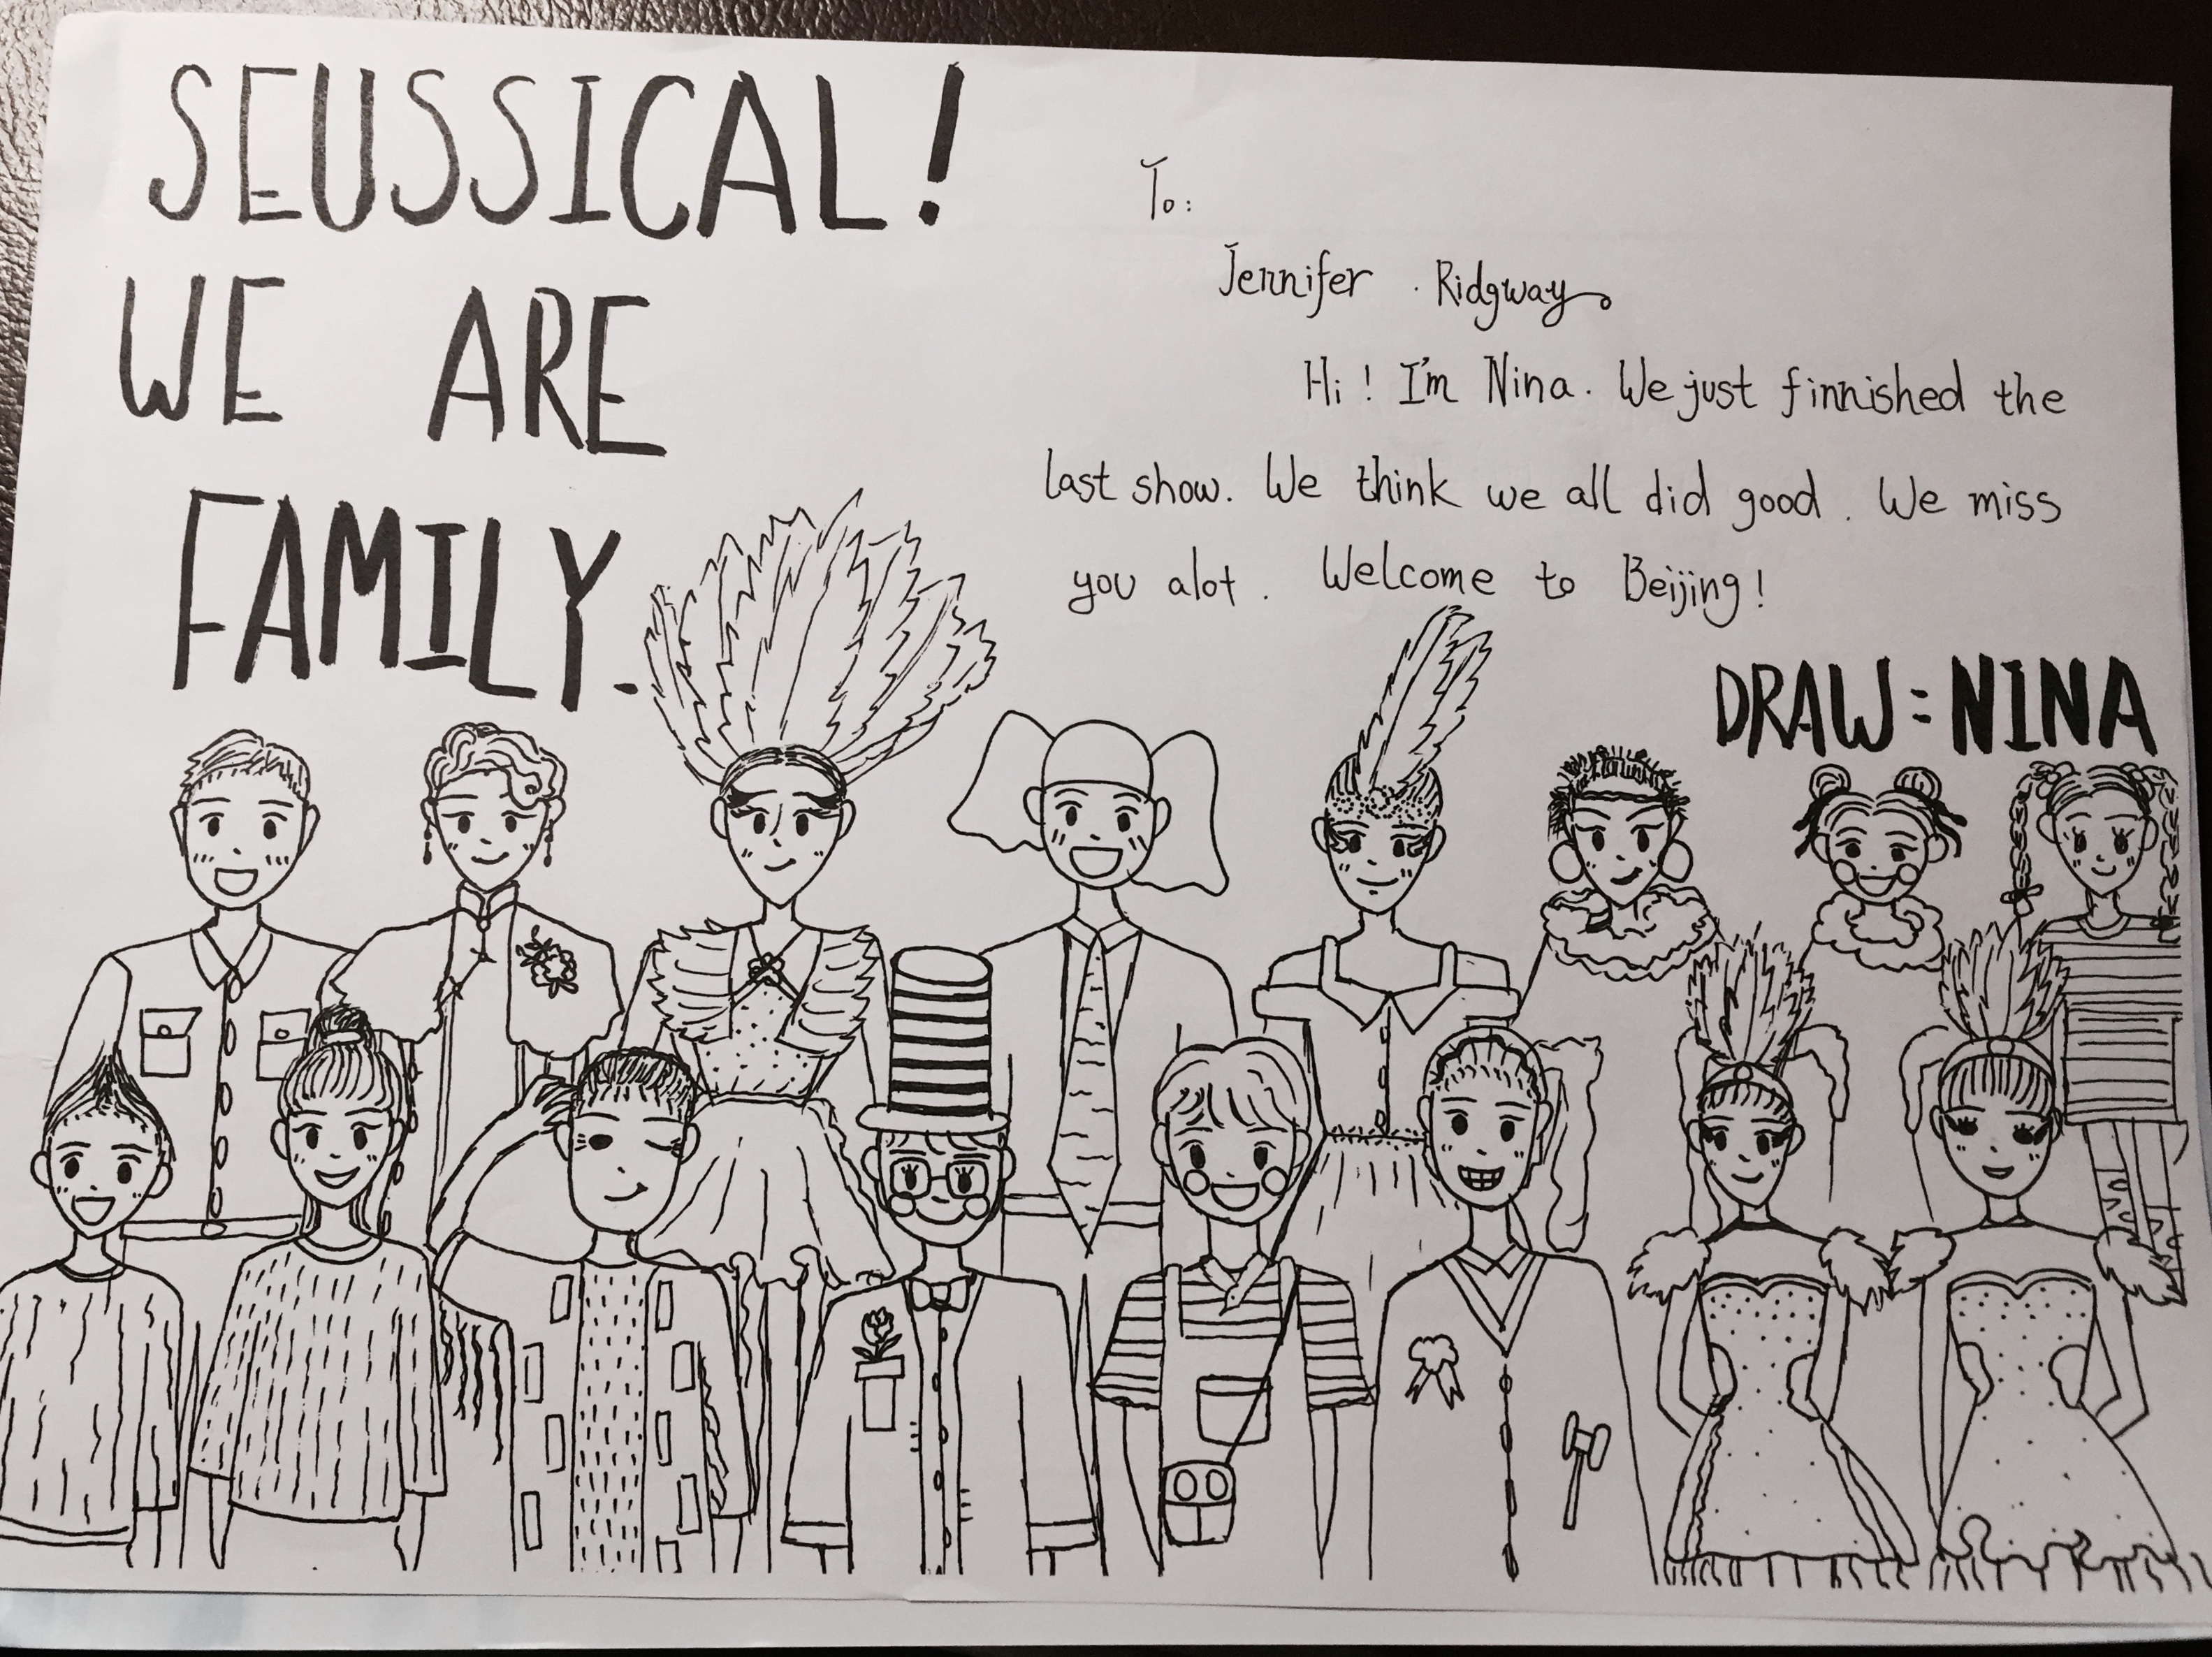 SEUSSICAL!
WE ARE
FAMILY.
To:
Jennifer . Ridgway
Hi! I'm Nina. We just finnished the
last show. We think we all did good. We miss
you alot. Welcome to Beijing!
DRAW: NINA